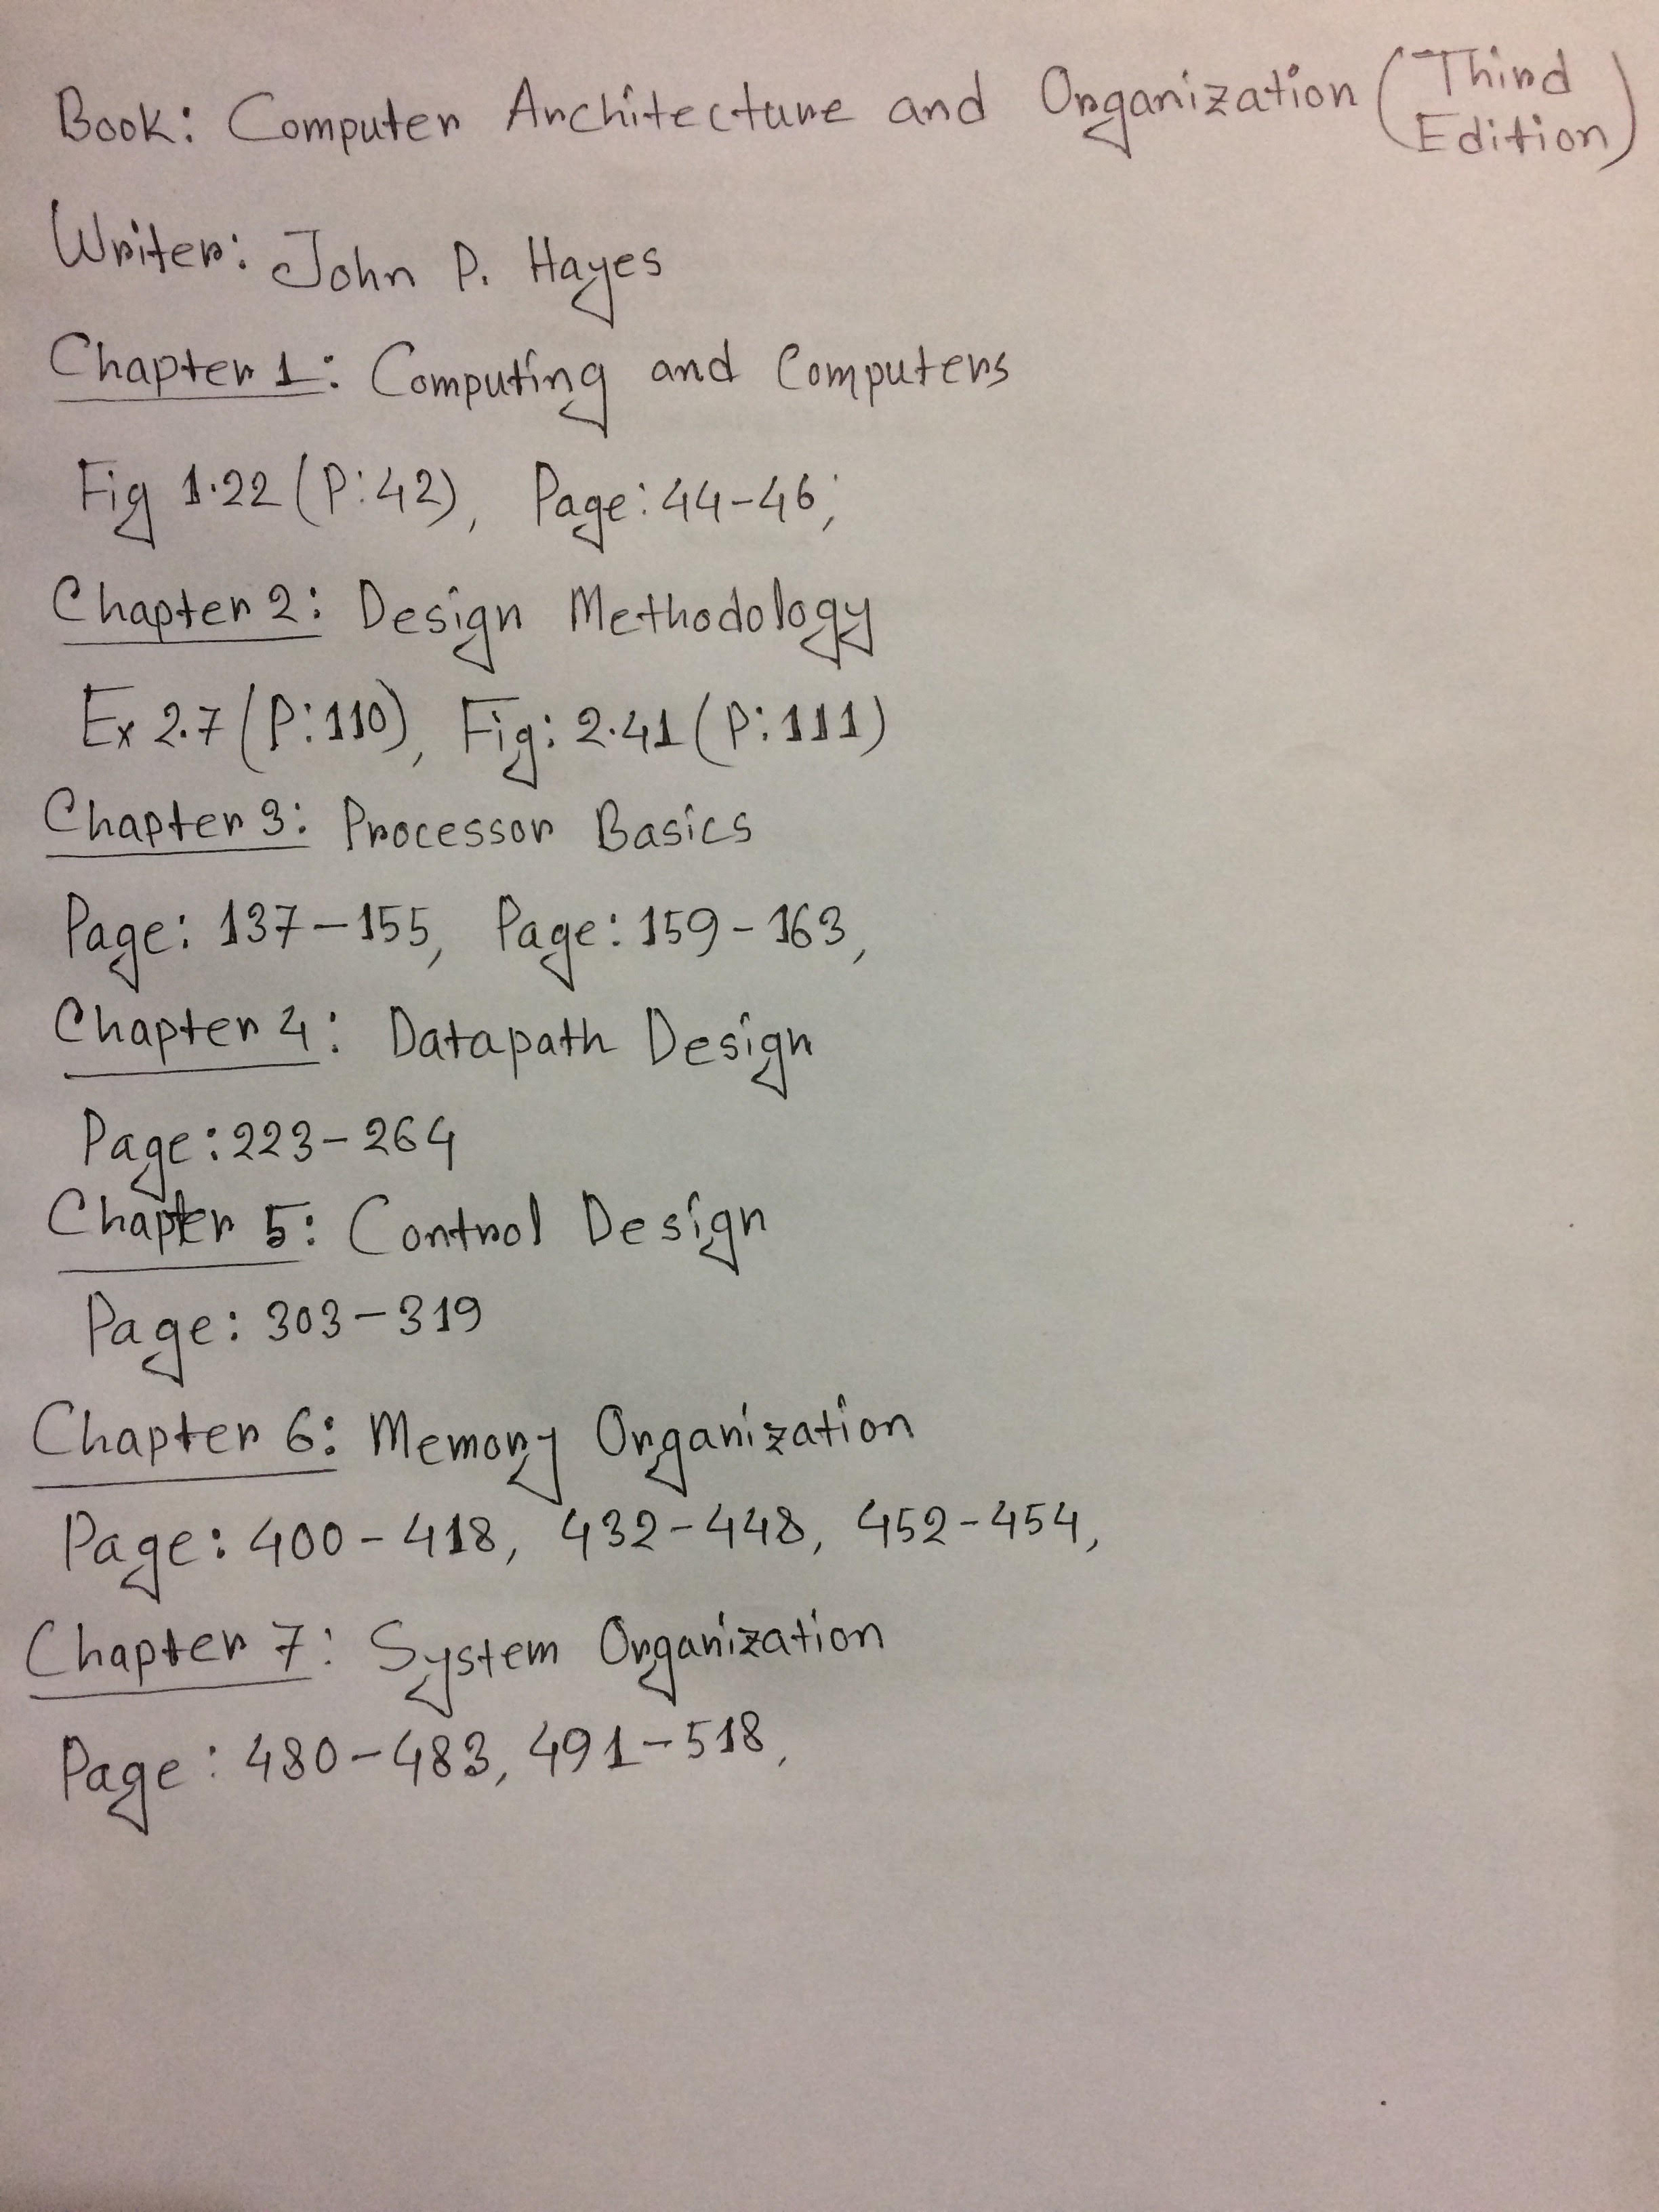 Book: Computer Architecture and Organization (Third Edition)
Writer: John P. Hayes
Chapter 1: Computing and Computers
Fig 1.22 (P:42), Page: 44-46;
Chapter 2: Design Methodology
Ex 2.7 (P:110), Fig: 2.41 (P:111)
Chapter 3: Processor Basics
Page: 137-155, Page: 159-163,
Chapter 4: Datapath Design
Page: 223-264
Chapter 5: Control Design
Page: 303-319
Chapter 6: Memory Organization
Page: 400-418, 432-448, 452-454,
Chapter 7: System Organization
Page: 480-483, 491-518,